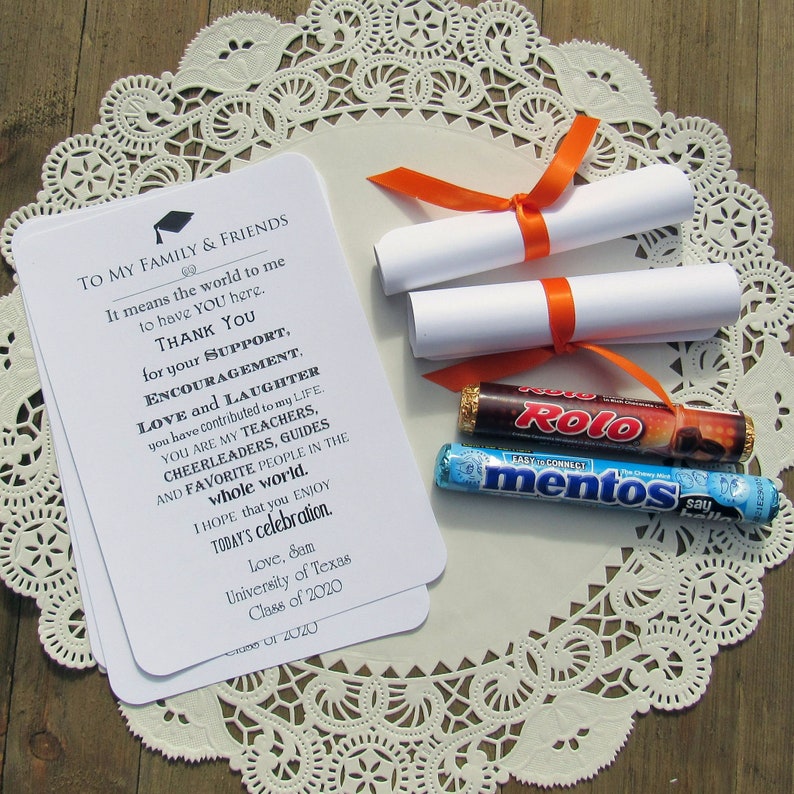 TO MY FAMILY & FRIENDS
It means the world to me
to have YOU here.
THANK YOU
for your SUPPORT,
ENCOURAGEMENT,
LOVE and LAUGHTER
you have contributed to my LIFE.
YOU ARE MY TEACHERS,
CHEERLEADERS, GUIDES
AND FAVORITE PEOPLE IN THE
whole world.
I HOPE that you ENJOY
TODAY'S celebration.
Love, Sam
University of Texas
Class of 2020
Class of 2020
in Rich Chocolate
ROLO
EASY TO CONNECT
The Chewy Mint
mentos
say
hello